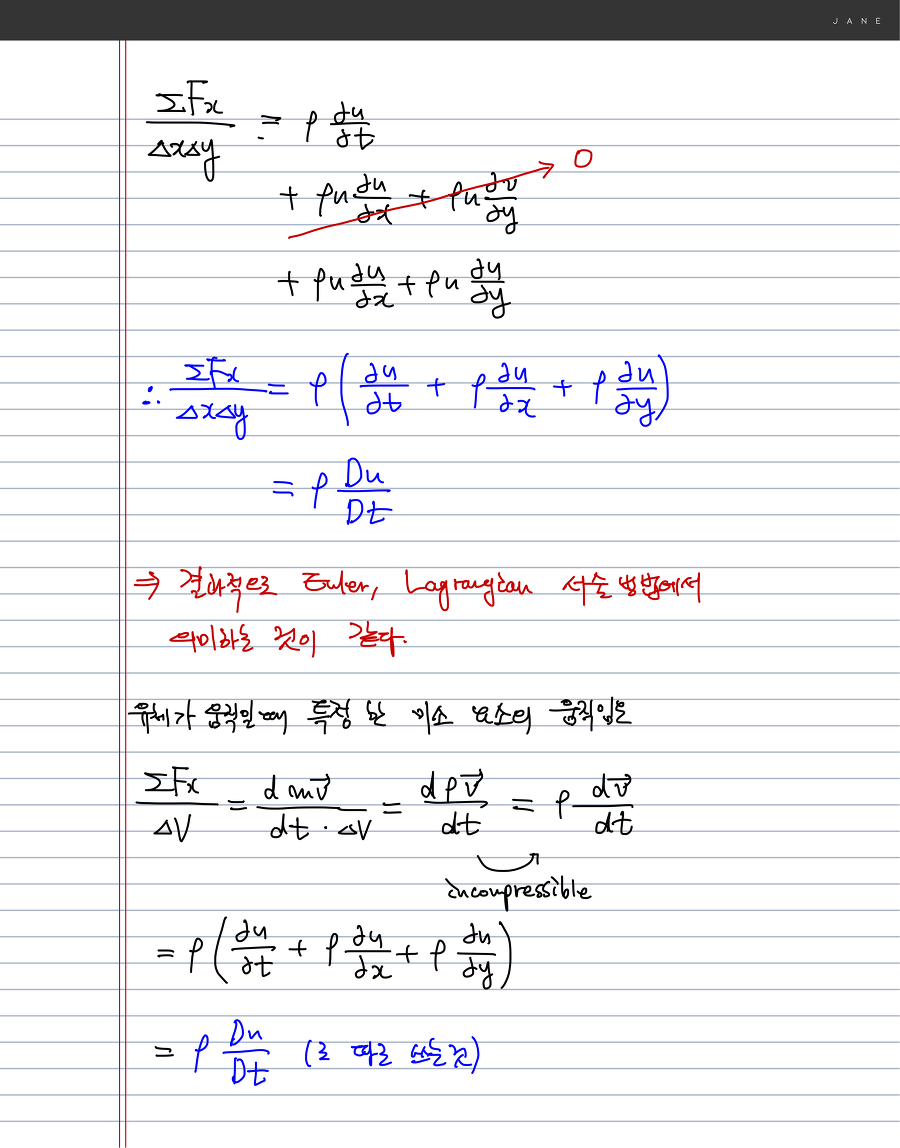 JANE
ΣFx/ΔxΔy = ρ ∂u/∂t
+ ρu ∂u/∂x + ρu ∂v/∂y → 0
+ ρu ∂u/∂x + ρu ∂u/∂y
∴ ΣFx/ΔxΔy = ρ(∂u/∂t + ρ ∂u/∂x + ρ ∂u/∂y)
= ρ Du/Dt
⇒ 결과적으로 Euler, Lagrangian 서술 방법에서
의미하는 것이 같다.
유체가 움직일때 특정 한 미소 요소의 움직임은
ΣFx/ΔV = d m v⃗/dt · ΔV = d ρ v⃗/dt = ρ d v⃗/dt
incompressible
= ρ(∂u/∂t + ρ ∂u/∂x + ρ ∂u/∂y)
= ρ Du/Dt (로 따로 쓰는것)